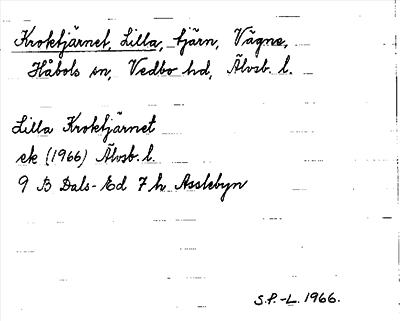 Kroktjärnet, Lilla, tjärn, Vägne,
Håbols sn, Vedbo hd, Älvsb. l.
Lilla Kroktjärnet
ek (1966) Älvsb. l.
9 B Dals-Ed 7 h Asslebyn
S.P.-L. 1966.